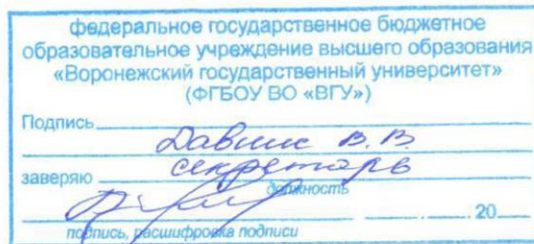 федеральное государственное бюджетное
образовательное учреждение высшего образования
«Воронежский государственный университет»
(ФГБОУ ВО «ВГУ»)
Подпись
В.В.
заверяю секретарь
должность
20
подпись, расшифровка подписи